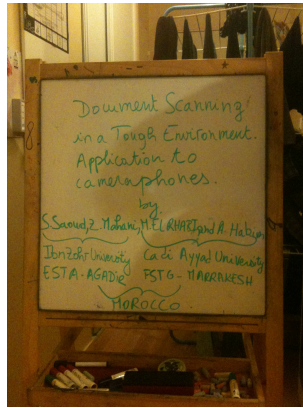 Document Scanning
in a Tough Environment.
Application to
cameraphones.
by
S.Saoud, Z. Mahani, M. EL RHABI and A. Hakim
Ibn Zohr University Cadi Ayyad University
ESTA-AGADIR FSTG-MARRAKESH
MOROCCO